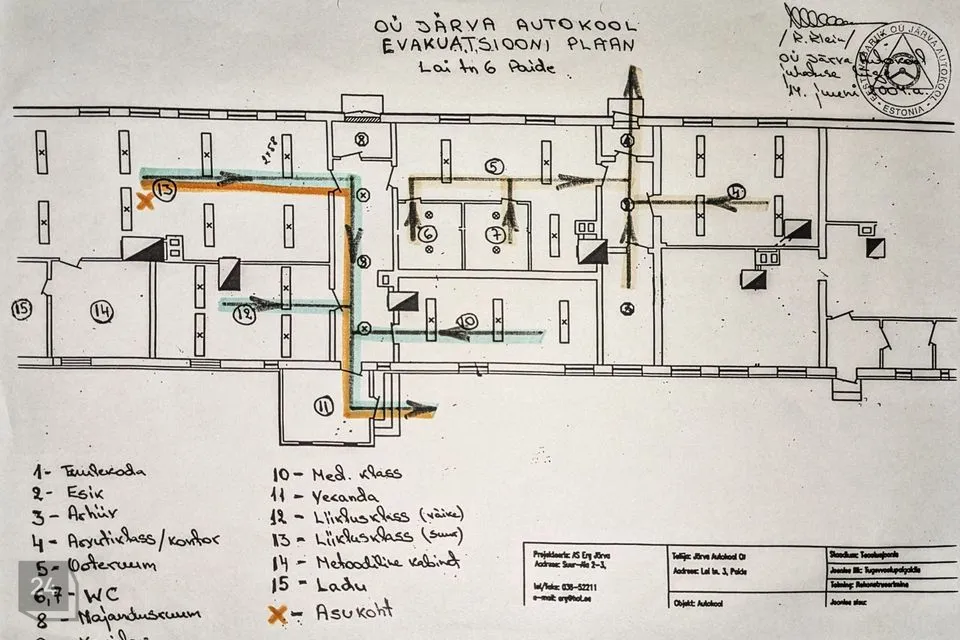 OÜ JÄRVA AUTOKOOL
EVAKUATSIOONI PLAAN
Lai tn 6 Paide
/R. Klein/
OÜ Järva
juhatuse
14. juuni 2004.a.
OÜ JÄRVA AUTOKOOL
ESTONIA
8
5
13
6
7
4
9
15
14
12
10
11
1- Tuulekoda
2- Esik
3- Arhiiv
4- Arvutiklass/kontor
5- Ooteruum
6,7- WC
8 - Majandusruum
10 - Med. klass
11 - Veranda
12 - Liiklusklass (väike)
13 - Liiklusklass (suur)
14 - Metoodiline kabinet
15 - Ladu
X - Asukoht
24
Projekteeris: AS Erg Järva
Aadress: Suur-Aia 2-3,
tel/faks: 038-52211
e-mail: erg@hot.ee
Tellija: Järva Autokool OÜ
Aadress: Lai tn. 3, Paide
Objekt: Autokool
Staadium: Tööjoonis
Joonise sisu: